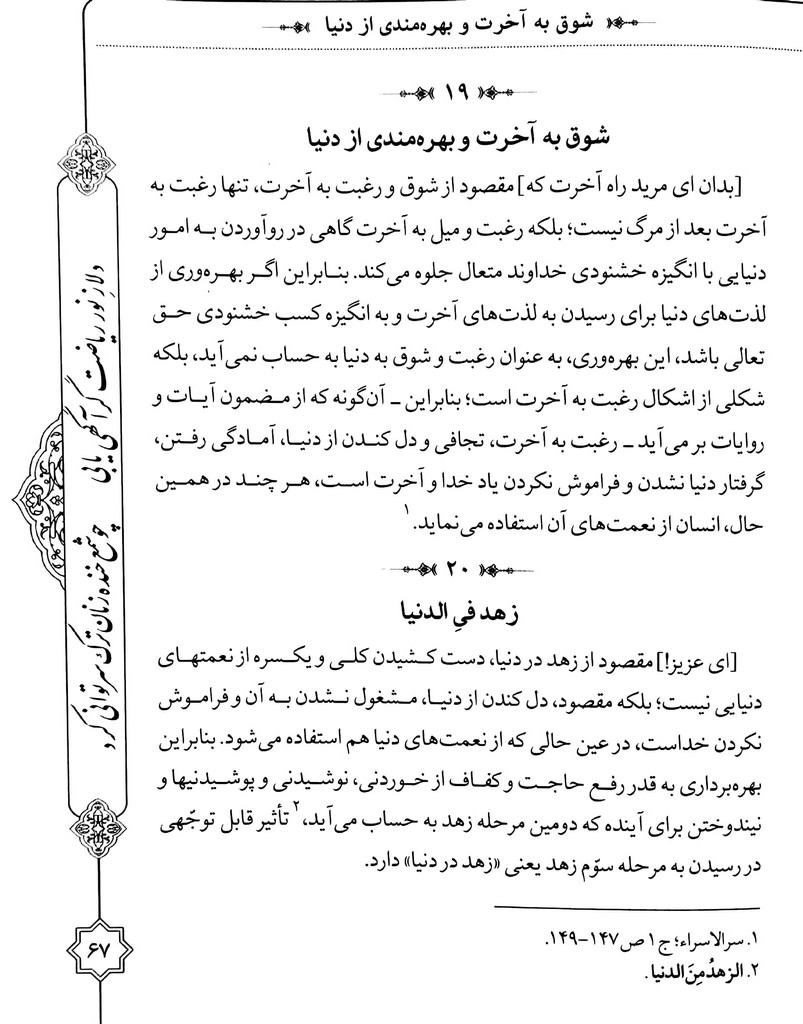 شوق به آخرت و بهره‌مندی از دنیا
۱۹
شوق به آخرت و بهره‌مندی از دنیا
[بدان ای مرید راه آخرت که] مقصود از شوق و رغبت به آخرت، تنها رغبت به
آخرت بعد از مرگ نیست؛ بلکه رغبت و میل به آخرت گاهی در روآوردن به امور
دنیایی با انگیزه خشنودی خداوند متعال جلوه می‌کند. بنابراین اگر بهره‌وری از
لذت‌های دنیا برای رسیدن به لذت‌های آخرت و به انگیزه کسب خشنودی حق
تعالی باشد، این بهره‌وری، به عنوان رغبت و شوق به دنیا به حساب نمی‌آید، بلکه
شکلی از اشکال رغبت به آخرت است؛ بنابراین ـ آن‌گونه که از مضمون آیات و
روایات بر می‌آید ـ رغبت به آخرت، تجافی و دل کندن از دنیا، آمادگی رفتن،
گرفتار دنیا نشدن و فراموش نکردن یاد خدا و آخرت است، هر چند در همین
حال، انسان از نعمت‌های آن استفاده می‌نماید.۱
۲۰
زهد فيِ الدنیا
[ای عزیز!] مقصود از زهد در دنیا، دست کشیدن کلی و یکسره از نعمتهای
دنیایی نیست؛ بلکه مقصود، دل کندن از دنیا، مشغول نشدن به آن و فراموش
نکردن خداست، در عین حالی که از نعمت‌های دنیا هم استفاده می‌شود. بنابراین
بهره‌برداری به قدر رفع حاجت و کفاف از خوردنی، نوشیدنی و پوشیدنیها و
نیندوختن برای آینده که دومین مرحله زهد به حساب می‌آید،۲ تأثیر قابل توجّهی
در رسیدن به مرحله سوّم زهد یعنی «زهد در دنیا» دارد.
۱. سرالاسراء؛ ج۱ ص۱۴۷-۱۴۹.
۲. الزهدُ مِنَ الدنیا.
دلا ز نور ریاضت گر آگهی یابی
چو شمع خنده زنان ترک سر توانی کرد
۶۷